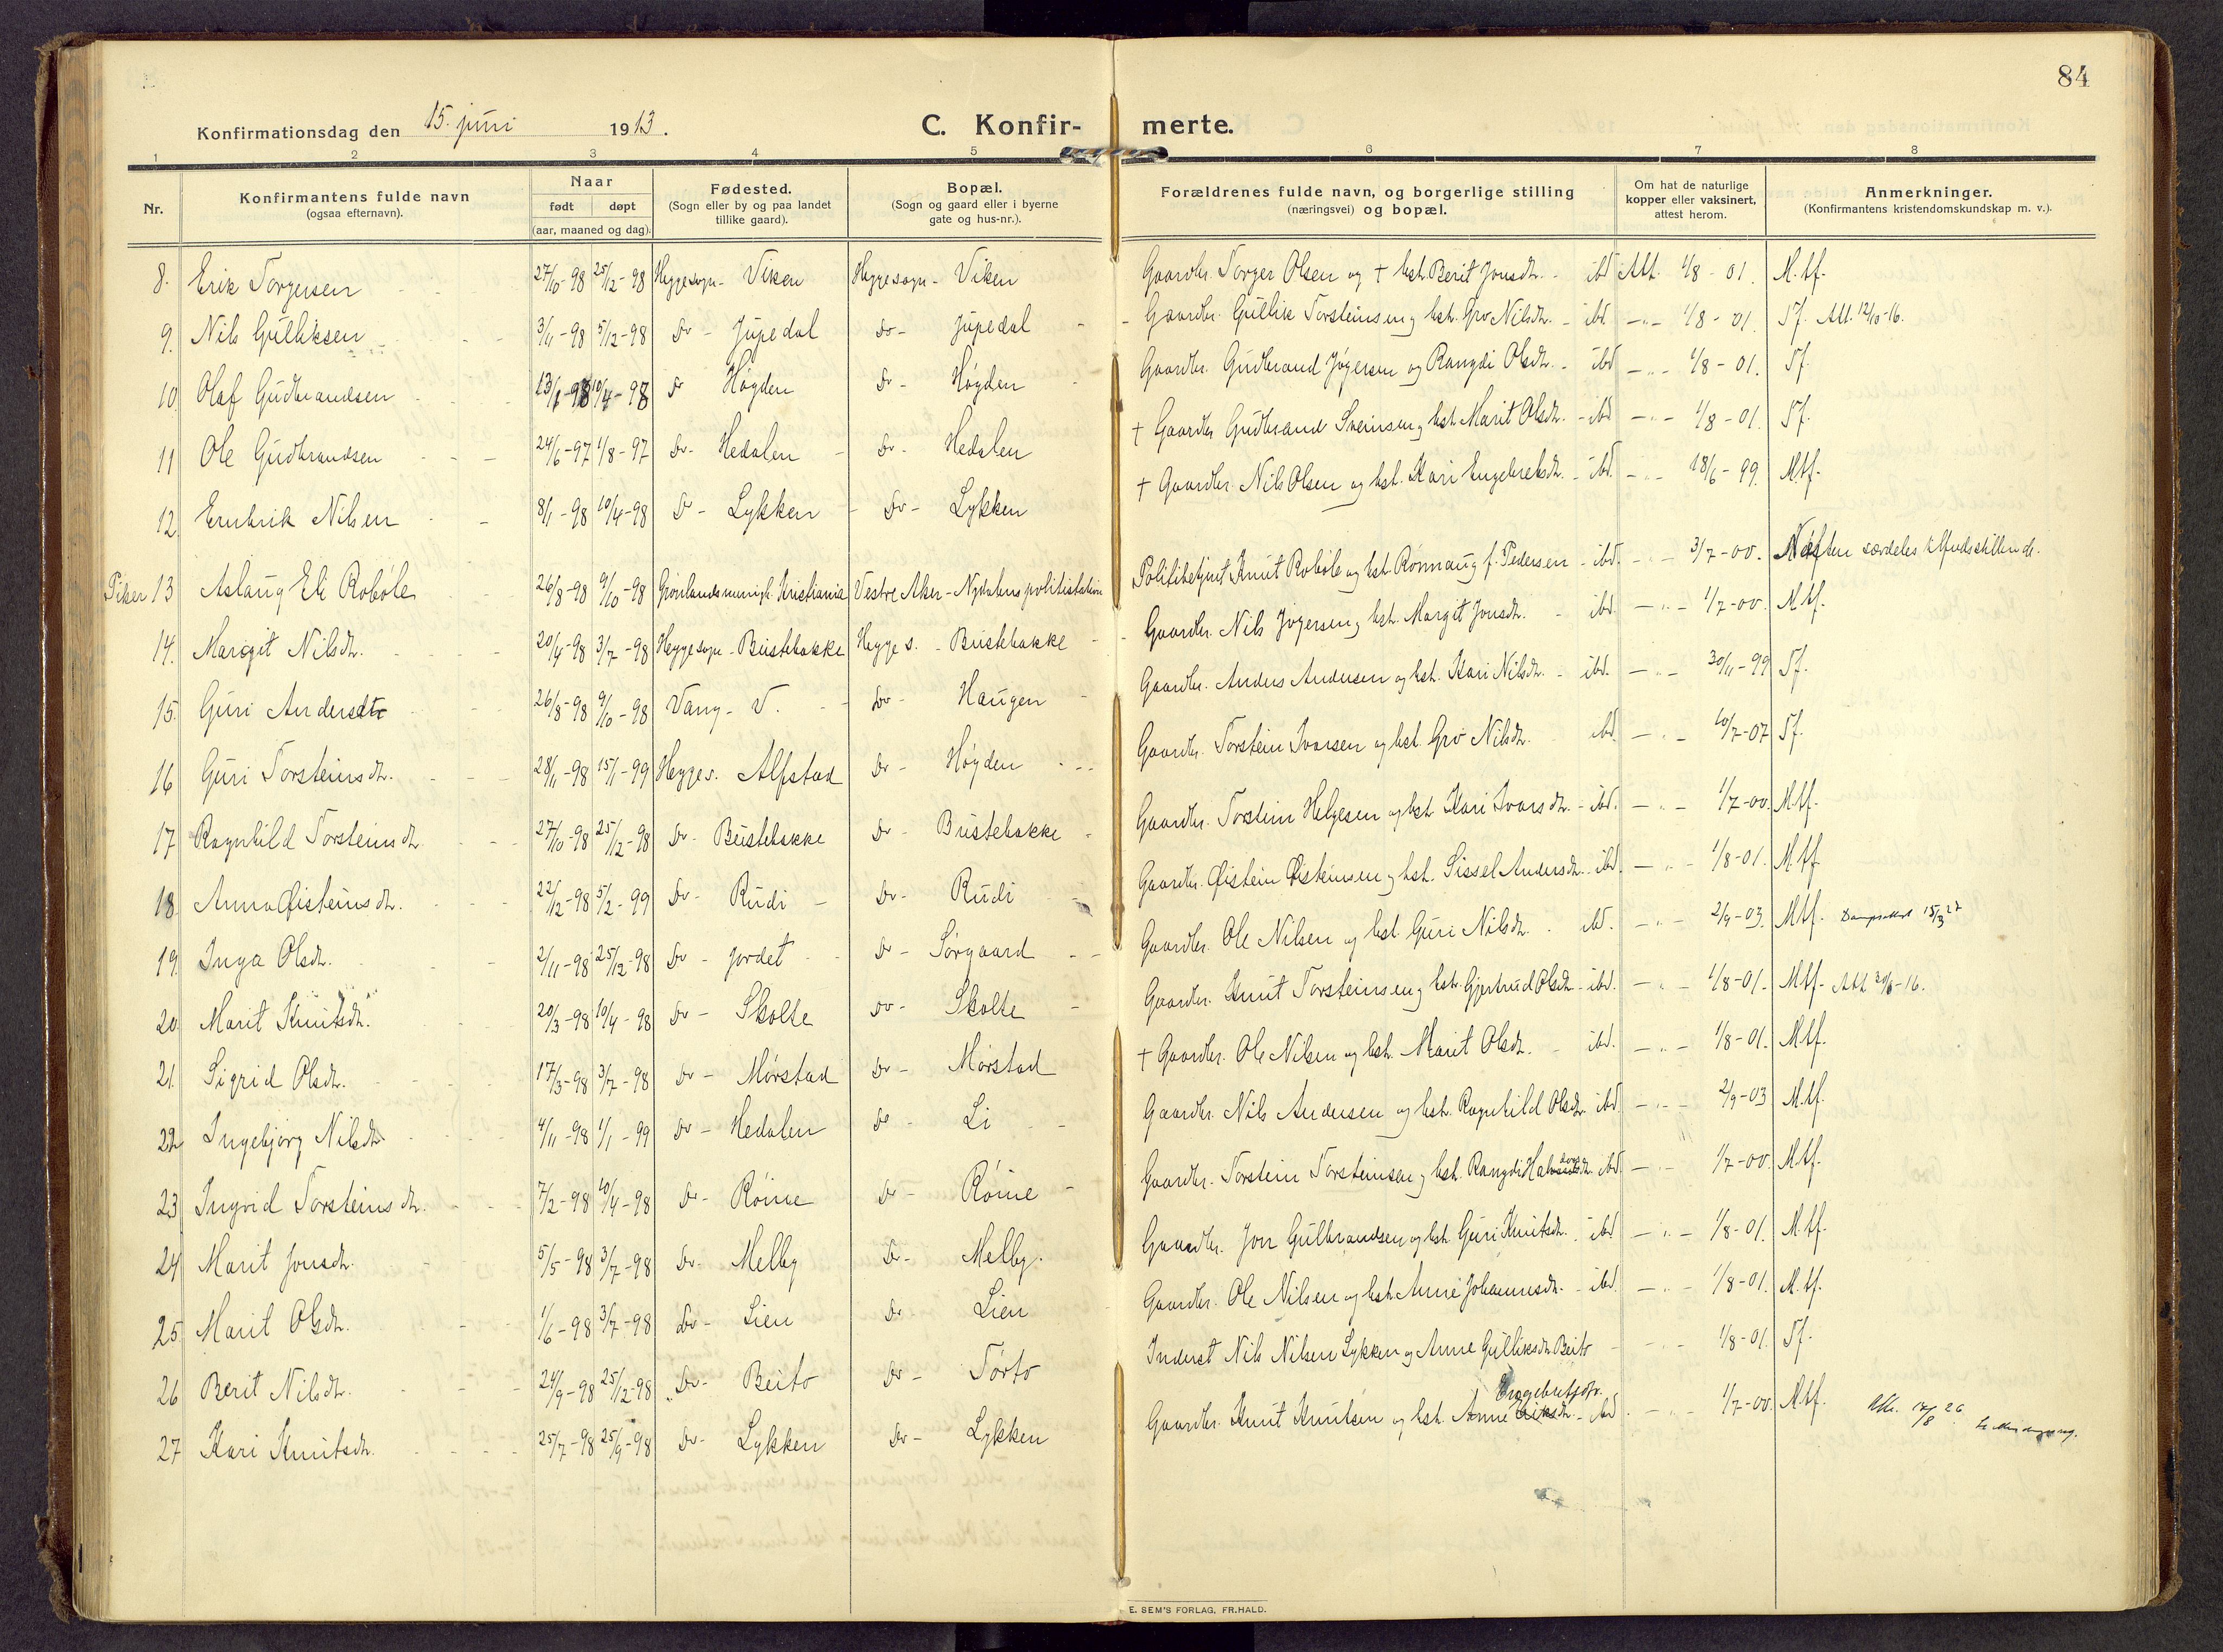 84
Konfirmationsdag den 15. juni 1913. C. Konfir- merte.
1 2 3 4 5 6 7 8
Nr. Konfirmantens fulde navn (ogsaa efternavn). Naar født døpt (aar, maaned og dag). Fødested. (Sogn eller by og paa landet tillike gaard). Bopæl. (Sogn og gaard eller i byerne gate og hus-nr.). Forældrenes fulde navn, og borgerlige stilling (næringsvei) og bopæl. Om hat de naturlige kopper eller vaksinert, attest herom. Anmerkninger. (Konfirmantens kristendomskundskap m. v.).
8. Erik Torgersen 27/10-98 25/12-98 Heggesogn - Viken Heggesogn - Viken Gaardbr. Torger Olsen og + hst. Berit Jonsdtr. - ibd Att. 1/8-01. M.tf.
9. Nils Gulliksen 3/11-98 5/12-98 Do - Jupedal Do - Jupedal Gaardbr. Gullik Torsteinsen og hst. Gro Nilsdtr. - ibd. -"- 1/8-01. Tf. Att. 12/10-16.
10. Olaf Gudbrandsen 13/1-98 10/4-98 Do Høgden Do - Høgden Gaardbr. Gudbrand Jøgersen og Rangdi Olsdtr. - ibd -"- 1/8-01. Tf.
11 Ole Gudbrandsen 24/6-97 1/8-97 Do - Hedalen Do - Hedalen + Gaardbr. Gudbrand Sveinsen og hst. Marit Olsdtr. - ibd -"- 1/8-01. Tf.
12. Embrik Nilsen 8/1-98 10/4-98 Do - Lykken Do - Lykken + Gaardbr. Nils Olsen og hst. Kari Engebretsdtr. - ibd. -"- 18/6-99. Mtf.
Piker 13 Aslaug Eli Robøle 26/8-98 9/10-98 Grønlands menigh. Kristiania Vestre Aker - Nydalens politistation Politibetjent Knut Robøle og hst. Rønnaug f. Pedersen - ibd. -"- 3/7-00. Næsten særdeles tilfredsstillende.
14. Margit Nilsdtr. 20/4-98 3/7-98 Heggesogn - Bustebakke Hegge s. - Bustebakke Gaardbr. Nils Jøgersen og hst. Margit Jonsdtr. - ibd. -"- 1/7-00. Mtf.
15. Guri Andersdtr 26/8-98 9/10-98 Vang - V. Do - Haugen Gaardbr. Anders Andersen og hst. Kari Nilsdtr. - ibd. -"- 30/11-99 Tf.
16 Guri Torsteinsdtr. 28/11-98 15/1-99 Hegge s. Alfstad Do - Høgden Gaardbr. Torstein Ivarsen og hst. Gro Nilsdtr. ibd. -"- 10/7-07 Tf.
17 Ragnhild Torsteinsdtr. 27/10-98 25/12-98 Do - Bustebakke Do - Bustebakke Gaardbr. Torstein Helgesen og hst. Kari Ivarsdtr. - ibd. -"- 1/7-00. Mtf.
18. Anna Øisteinsdtr. 22/12-98 5/2-99 Do - Rudi Do - Rudi Gaardbr. Øistein Øisteinsen og hst. Sissel Andersdtr. - ibd. -"- 1/8-01. Mtf
19. Inga Olsdtr. 2/11-98 25/12-98 Do - Jordet Do - Sørgaard Gaardbr. Ole Nilsen og hst. Guri Nilsdtr. ibd. -"- 2/9-03. Mtf. 15/3 27
20. Marit Knutsdtr. 20/3-98 10/4-98 Do - Skolte Do - Skolte Gaardbr. Knut Torsteinsen og hst. Gjertrud Olsdtr. - ibd. -"- 1/8-01. Mtf. Att. 20/6-16.
21. Sigrid Olsdtr. 17/3-98 3/7-98 Do - Mørstad Do - Mørstad + Gaardbr. Ole Nilsen og hst. Marit Olsdtr. - ibd. -"- 1/8-01. Mtf.
22 Ingebjørg Nilsdtr. 4/11-98 1/1-99 Do - Hedalen Do - Li Gaardbr. Nils Andersen og hst. Ragnhild Olsdtr. ibd. -"- 2/9-03 M.tf.
23 Ingrid Torsteinsdtr. 7/2-98 10/4-98 Do - Røine Do - Røine Gaardbr. Torstein Torsteinsen og hst. Rangdi ibd. -"- 1/7-00. M.tf.
24 Marit Jonsdtr. 5/5-98 3/7-98 Do - Melby Do - Melby. Gaardbr. Jon Gulbrandsen og hst. Guri Knutsdtr. ibd -"- 1/8-01. M.tf.
25. Marit Olsdtr. 1/6-98 3/7-98 Do - Lien Do Lien Gaardbr. Ole Nilsen og hst. Anne Johannesdtr. - ibd. -"- 1/8-01. M.tf.
26 Berit Nilsdtr. 24/9-98 25/12-98 Do - Beito Do - Tørto Inderst Nils Nilsen Lykken og Anne Gulliksdtr. Beito -"- 1/8-01. Tf
27 Kari Knutsdtr. 25/7-98 25/9-98 Do - Lykken Do - Lykken Gaardbr. Knut Knutsen og hst. Anne Engebretsdtr. - ibd -"- 1/7-00. M.tf. 17/8 26
E. SEM'S FORLAG, FR.HALD.